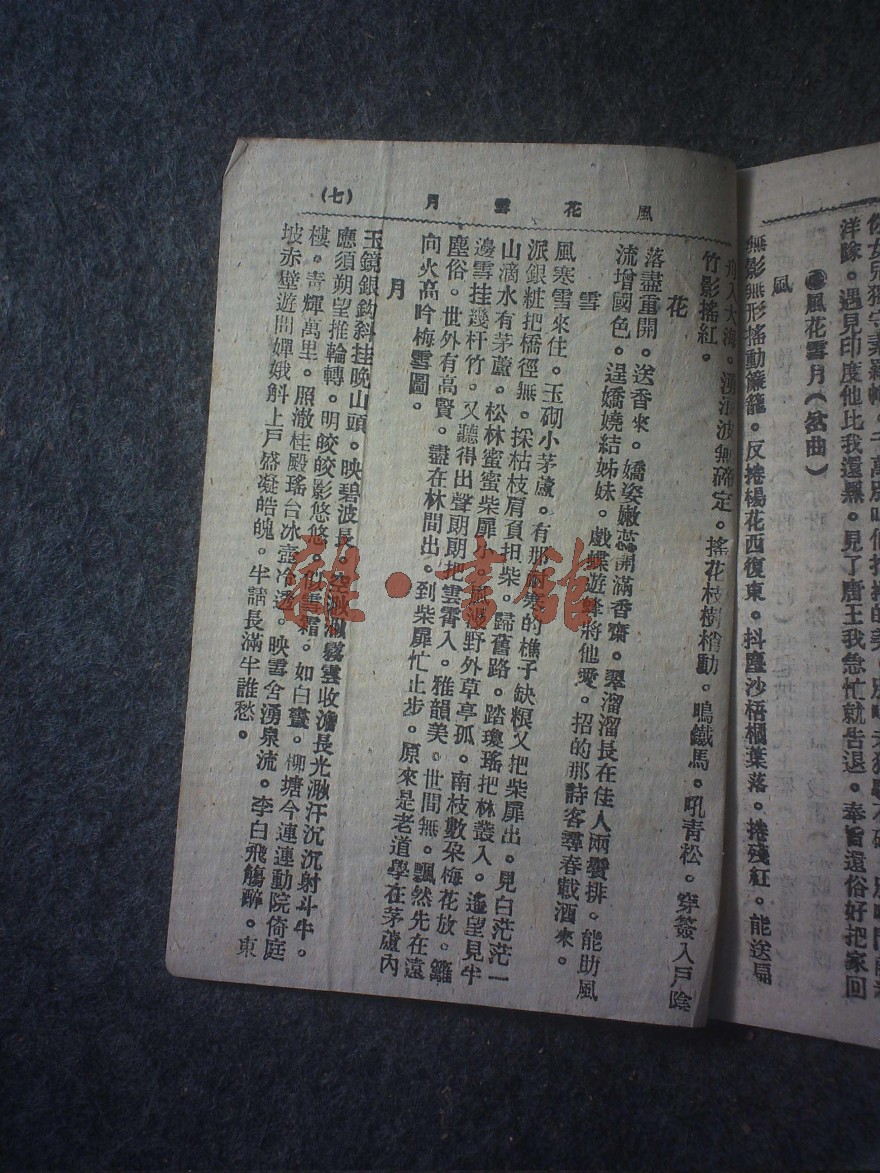 洋隊。遇見印度他比我還黑。見了唐王我急忙就告退。奉旨還俗好把家回
●風花雪月(岔曲)
風
無影無形搖動簾籠。反捲楊花西復東。抖塵沙梧桐葉落。捲殘紅。能送扁
風花雪月
(七)
舟入大海。湧江波無確定。搖花枝樹梢動。鳴鐵馬。吼青松。穿簽入戶陰
竹影搖紅。
花
落盡重開。送香來。嬌姿嫩蕊開滿香齋。翠溜溜長在佳人兩鬢排。能助風
流增國色。逞嬌嬈結姊妹。戲蝶遊蜂將他愛。招的那詩客尋春載酒來。
雪
風寒雪來住。玉砌小茅蘆。有那耐寒的樵子缺粮又把柴扉出。見白茫茫一
派銀粧把橋徑無。採枯枝肩負担柴。歸舊路。踏瓊瑤把林叢入。遙望見半
山滴水有茅蘆。松林蜜蜜柴扉小。野外草亭孤。南枝數朶梅花放。籬
邊雪挂幾杆竹。又聽得出聲朗朗把雲霄入。雅韻美。世間無。飄然先在遠
塵俗。世外有高賢。盡在林間出。到柴扉忙止步。原來是老道學在茅蘆內
向火高吟梅雪圖。
月
玉鏡銀鈎斜挂晚山頭。映碧波長。空湫湫霧雲收澹長光湫汗沉沉射斗牛。
應須朔望推輪轉。明皎皎影悠悠。似雪霜。如白晝。柳塘今連連動院倚庭
樓。青輝萬里。照澈桂殿瑤台冰壺冷透。映雪含湧泉流。李白飛觴醉。東
坡赤壁遊問嬋娥斛上戶盛凝皓魄。半請長滿半誰愁。
雜·書館